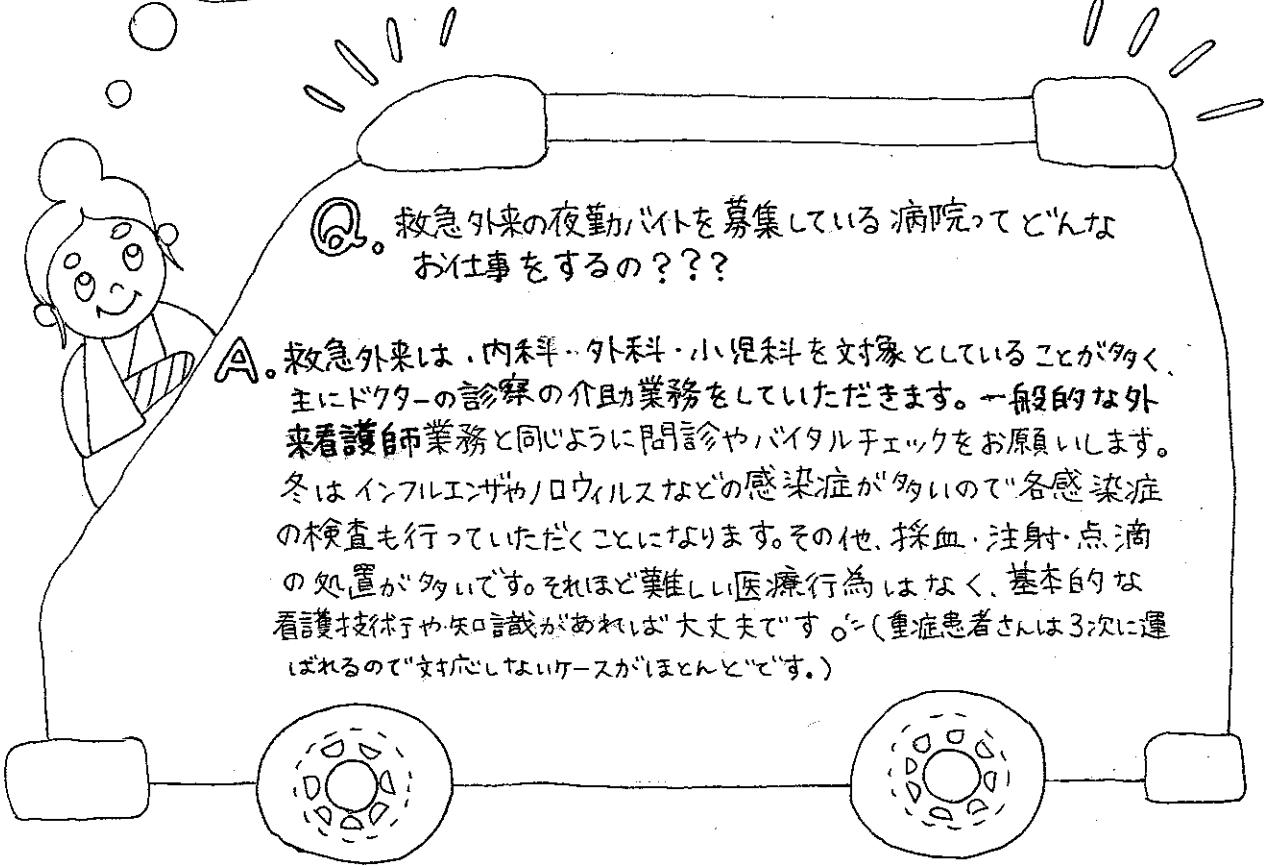 Q. 救急外来の夜勤バイトを募集している病院ってどんな
お仕事をするの？？？
A. 救急外来は、内科・外科・小児科を対象としていることが多く、
主にドクターの診察の介助業務をしていただきます。一般的な外
来看護師業務と同じように問診やバイタルチェックをお願いします。
冬はインフルエンザやノロウィルスなどの感染症が多いので各感染症
の検査も行っていただくことになります。その他、採血・注射・点滴
の処置が多いです。それほど難しい医療行為はなく、基本的な
看護技術や知識があれば大丈夫です。(重症患者さんは3次に運
ばれるので対応しないケースがほとんどです。)